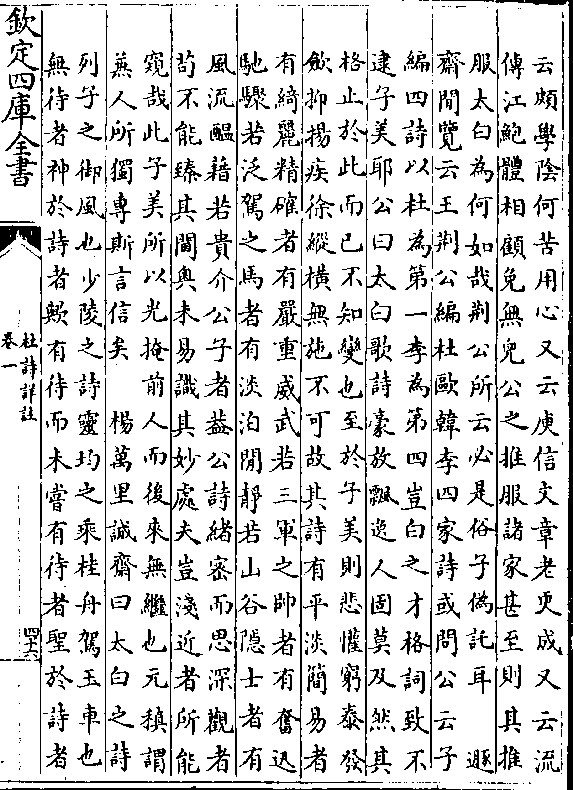 云頗學陰何苦用心又云庾信文章老更成又云流
傳江鮑體相顧免無兒公之推服諸家甚至則其推
服太白為何如哉荆公所云必是俗子偽託耳　遯
齋閒覽云王荆公編杜歐韓李四家詩或問公云子
編四詩以杜為第一李為第四豈白之才格詞致不
逮子美耶公曰太白歌詩豪放飄逸人固莫及然其
格止於此而已不知變也至於子美則悲懽窮泰發
斂抑揚疾徐縱橫無施不可故其詩有平淡簡易者
有綺麗精確者有嚴重威武若三軍之帥者有奮迅
馳驟若泛駕之馬者有淡泊閒靜若山谷隱士者有
風流醖藉若貴介公子者蓋公詩緒密而思深觀者
苟不能臻其閫奥未易識其妙處夫豈淺近者所能
窺哉此子美所以光掩前人而後來無繼也元稹謂
兼人所獨專斯言信矣　楊萬里誠齋曰太白之詩
列子之御風也少陵之詩靈均之乘桂舟駕玉車也
無待者神於詩者歟有待而未嘗有待者聖於詩者
欽定四庫全書
杜詩詳註
卷一
四十六